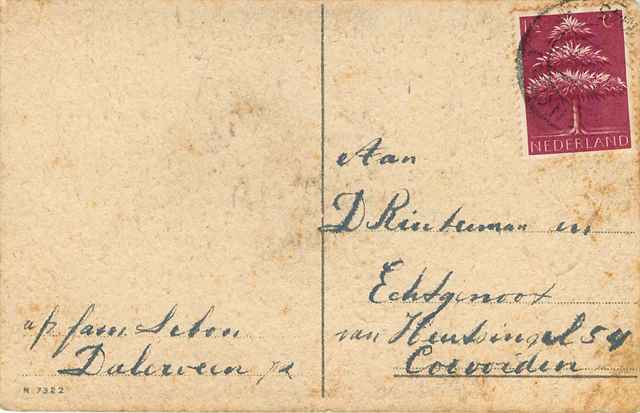 1½ C
NEDERLAND
Aan
D Rinteman en
Echtgenoot
van Heutsingel 54
Coevorden
afz fam. Lebon
Dalerveen
N. 7322